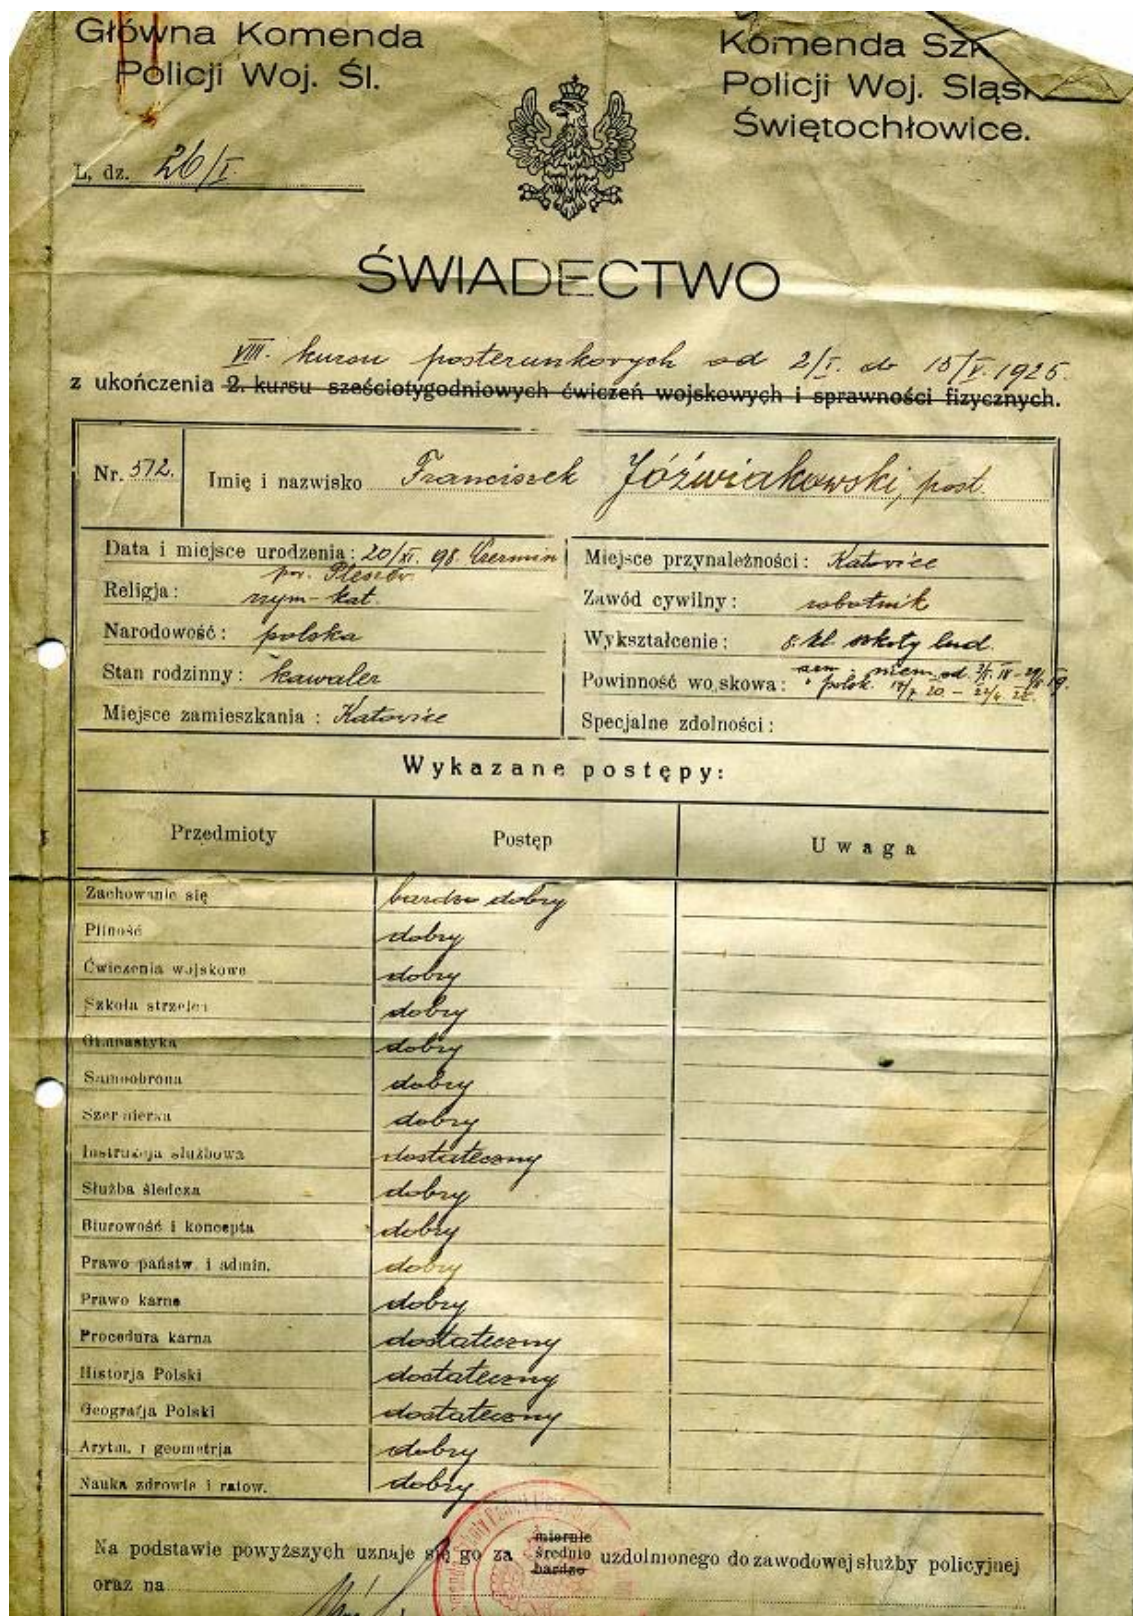 Główna Komenda
Policji Woj. Śl.
Komenda Szk
Policji Woj. Śląsk
Świętochłowice.
L. dz. 26/I.
ŚWIADECTWO
VIII. kursu posterunkowych od 2/I. do 15/V. 1925.
z ukończenia 2. kursu sześciotygodniowych ćwiczeń wojskowych i sprawności fizycznych.
Nr. 572. Imię i nazwisko Franciszek Jóźwiakowski, post.
Data i miejsce urodzenia: 20/XI. 98. Czermin
pow. Pleszew.
Religja: rzym-kat.
Narodowość: polska
Stan rodzinny: kawaler
Miejsce zamieszkania: Katowice
Miejsce przynależności: Katowice
Zawód cywilny: robotnik
Wykształcenie: 8. kl. szkoły lud.
Powinność wojskowa: arm. niem. od
" polsk.
Specjalne zdolności:
Wykazane postępy:
Przedmioty Postęp Uwaga
Zachowanie się bardzo dobry
Pilność dobry
Ćwiczenia wojskowe dobry
Szkoła strzelca dobry
Gimnastyka dobry
Samoobrona dobry
Szermierka dobry
Instrukcja służbowa dostateczny
Służba śledcza dobry
Biurowość i koncepta dobry
Prawo państw. i admin. dobry
Prawo karne dobry
Procedura karna dostateczny
Historja Polski dostateczny
Geografja Polski dostateczny
Arytm. i geometrja dobry
Nauka zdrowia i ratow. dobry
Na podstawie powyższych uznaje się go za miernie średnio bardzo uzdolnionego do zawodowej służby policyjnej
oraz na